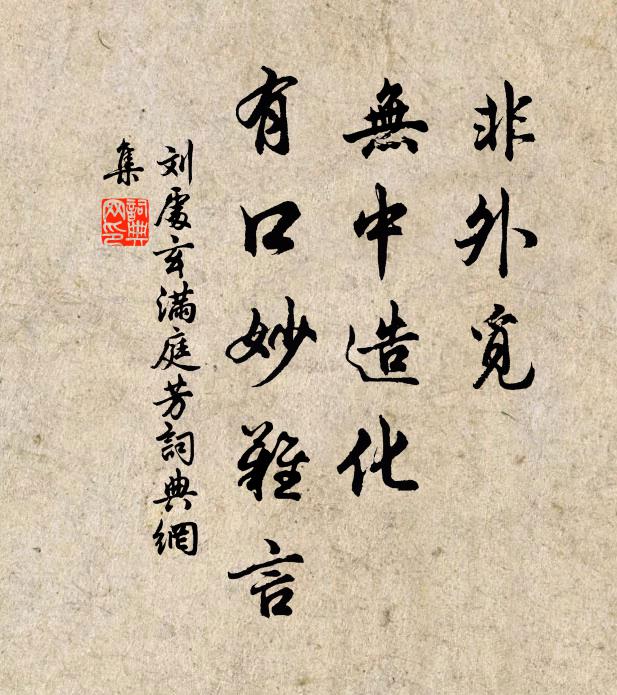 非外覓
無中造化
有口妙難言
刘處玄滿庭芳詞典網
集
詞典网印